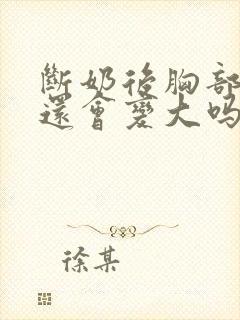 斷奶後胸部
還會變大嗎
徐某